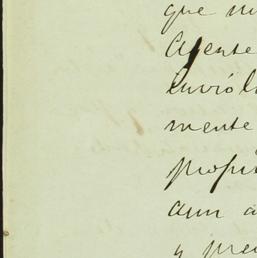 que m
Agente
inviól
mente
propi
aun a
y pre